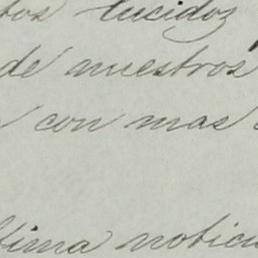 tos lucidoz
de nuestros
con mas
tima notici